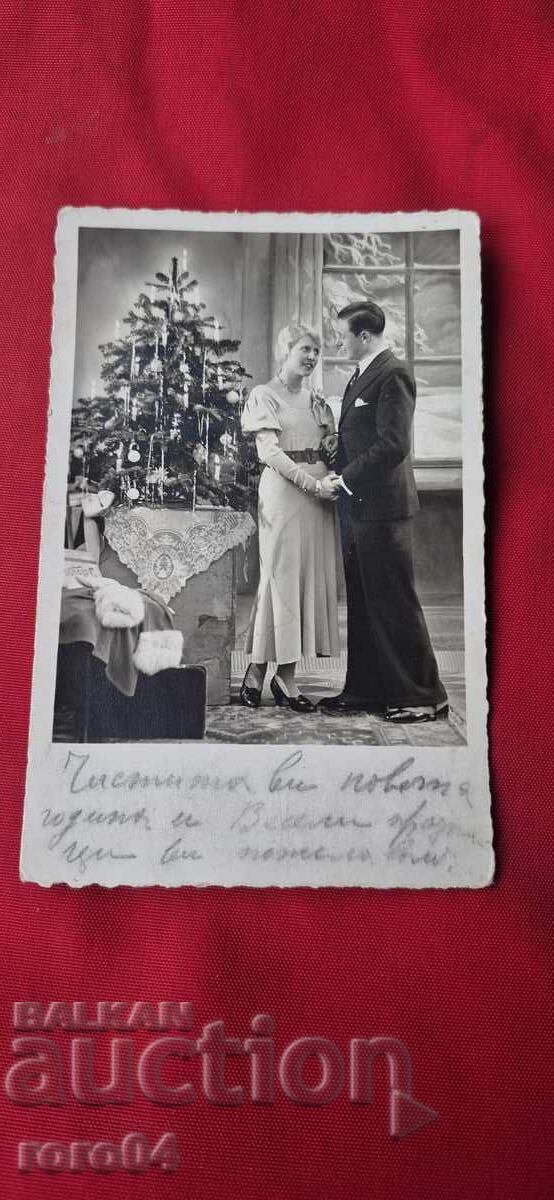 Честита ви новата
година и Весели праз
ци ви пожелавам.
BALKAN
auction
roro04